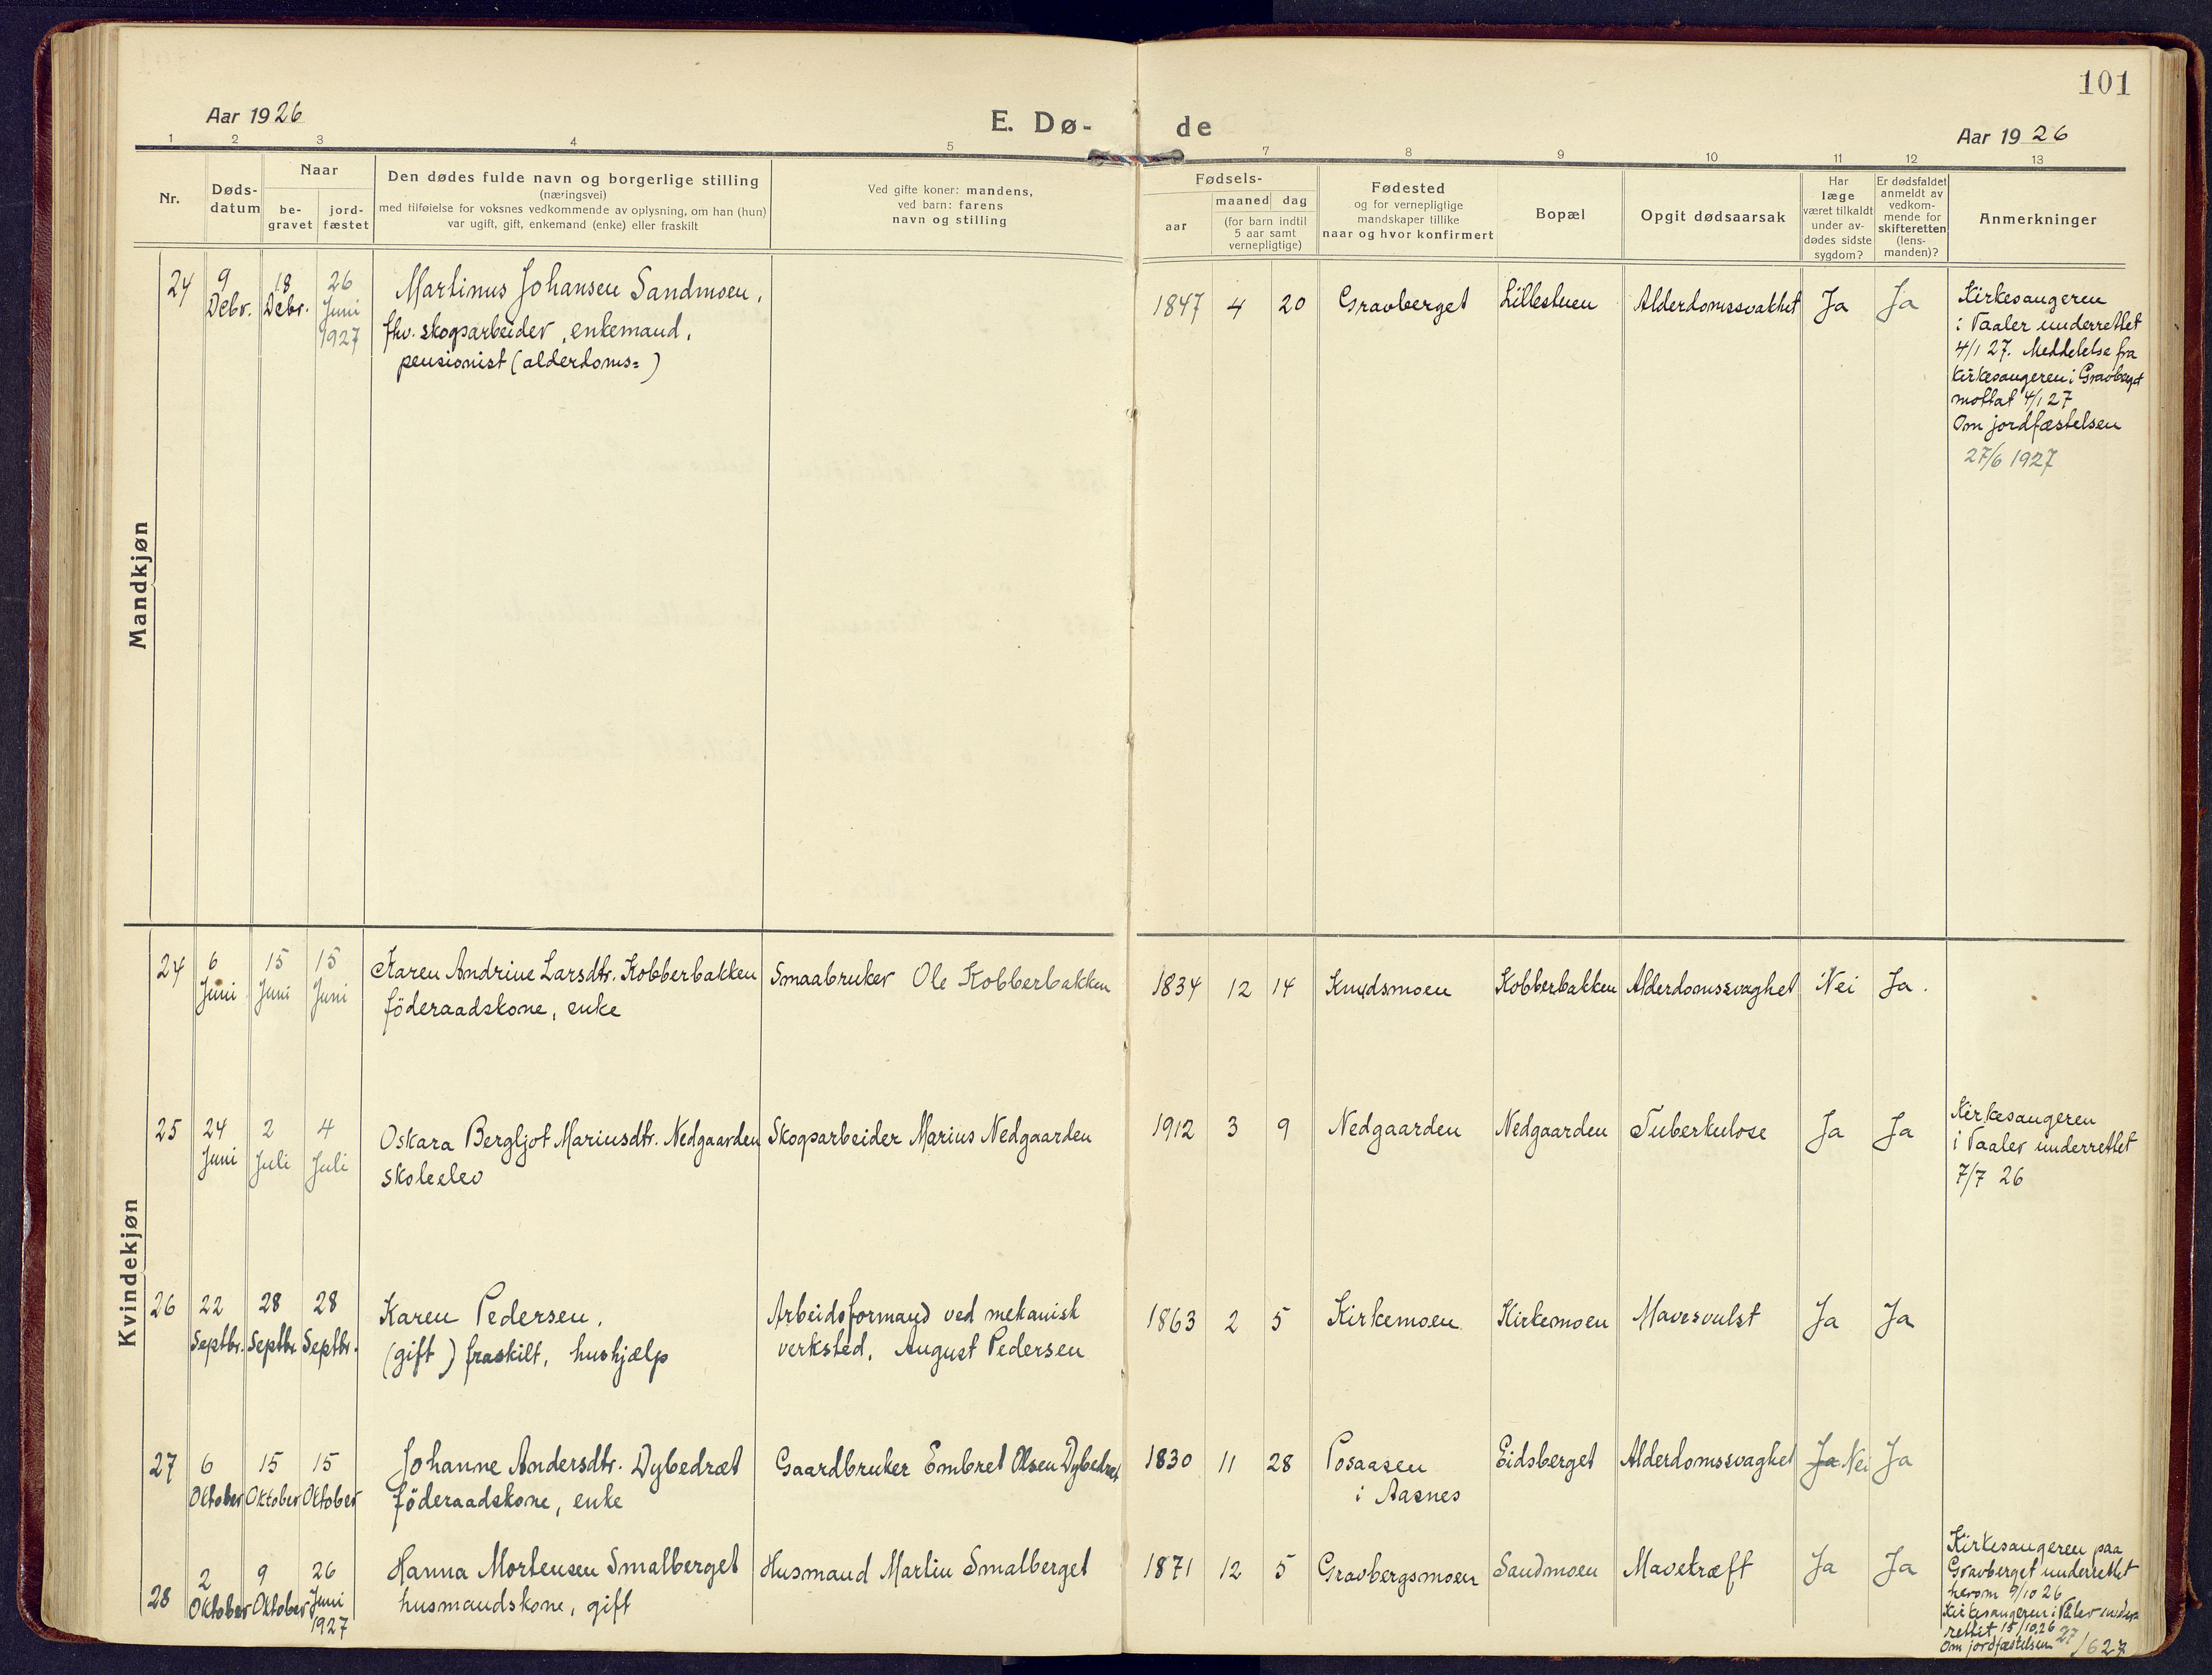 101
Aar 1926
E. Dø- de
Aar 1926
1 2 3 4 5 7 8 9 10 11 12 13
Nr.
Døds-
datum
Naar
be-
gravet
jord-
fæstet
Den dødes fulde navn og borgerlige stilling
(næringsvei)
med tilføielse for voksnes vedkommende av oplysning, om han (hun)
var ugift, gift, enkemand (enke) eller fraskilt
Ved gifte koner: mandens,
ved barn: farens
navn og stilling
Fødsels-
aar
maaned dag
(for barn indtil
5 aar samt
vernepligtige)
Fødested
og for vernepliglige
mandskaper tillike
naar og hvor konfirmert
Bopæl
Opgit dødsaarsak
Har
læge
været tilkaldt
under av-
dødes sidste
sygdom?
Er dødsfaldet
anmeldt av
vedkom-
mende for
skifteretten
(lens-
manden)?
Anmerkninger
Mandkjøn
24
9
Debr.
18
Debr.
26
Juni
1927
Martinus Johansen Sandmoen,
fhv. skogsarbeider, enkemand,
pensionist (alderdoms=)
1847 4 20 Gravberget Lillestuen Alderdomssvakhet Ja Ja
Kirkesangeren
i Vaaler underrettet
4/1 27. Meddelelse fra
kirkesangeren i Gravberget
mottat 4/1 27
Om jordfæstelsen
27/6 1927
Kvindekjøn
24
6
Juni
15
Juni
15
Juni
Karen Andrine Larsdtr. Kobberbakken
föderaadskone, enke
Smaabruker Ole Kobberbakken
1834 12 14 Knudsmoen Kobberbakken Alderdomssvaghet Nei Ja.
25
24
Juni
2
Juli
4
Juli
Oskara Bergljot Mariusdtr. Nedgaarden
skoleelev
Skogsarbeider Marius Nedgaarden
1912 3 9 Nedgaarden Nedgaarden Tuberkulose Ja Ja
Kirkesangeren
i Vaaler underrettet
7/7 26
26
22
Septbr.
28
Septbr
28
Septbr.
Karen Pedersen,
(gift) fraskilt, hushjælp
Arbeidsformand ved mekanisk
verksted, August Pedersen
1863 2 5 Kirkemoen Kirkemoen Mavesvulst Ja Ja
27
6
Oktober
15
Oktober
15
Oktober
Johanne Andersdtr. Dybedræt
föderaadskone, enke
Gaardbruker Embret Olsen Dybedræt
1830 11 28 Posaasen
i Aasnes
Eidsberget Alderdomssvaghet Ja Nei Ja
28
2
Oktober
9
Oktober
26
Juni
1927
Hanna Mortensen Smalberget
husmandskone, gift
Husmand Martin Smalberget
1871 12 5 Gravbergsmoen Sandmoen Mavekræft Ja Ja
Kirkesangeren paa
Gravberget underrettet
herom 9/10 26
Kirkesangeren i Våler under
rettet 15/10.26
Om jordfæstelsen 27/6 27